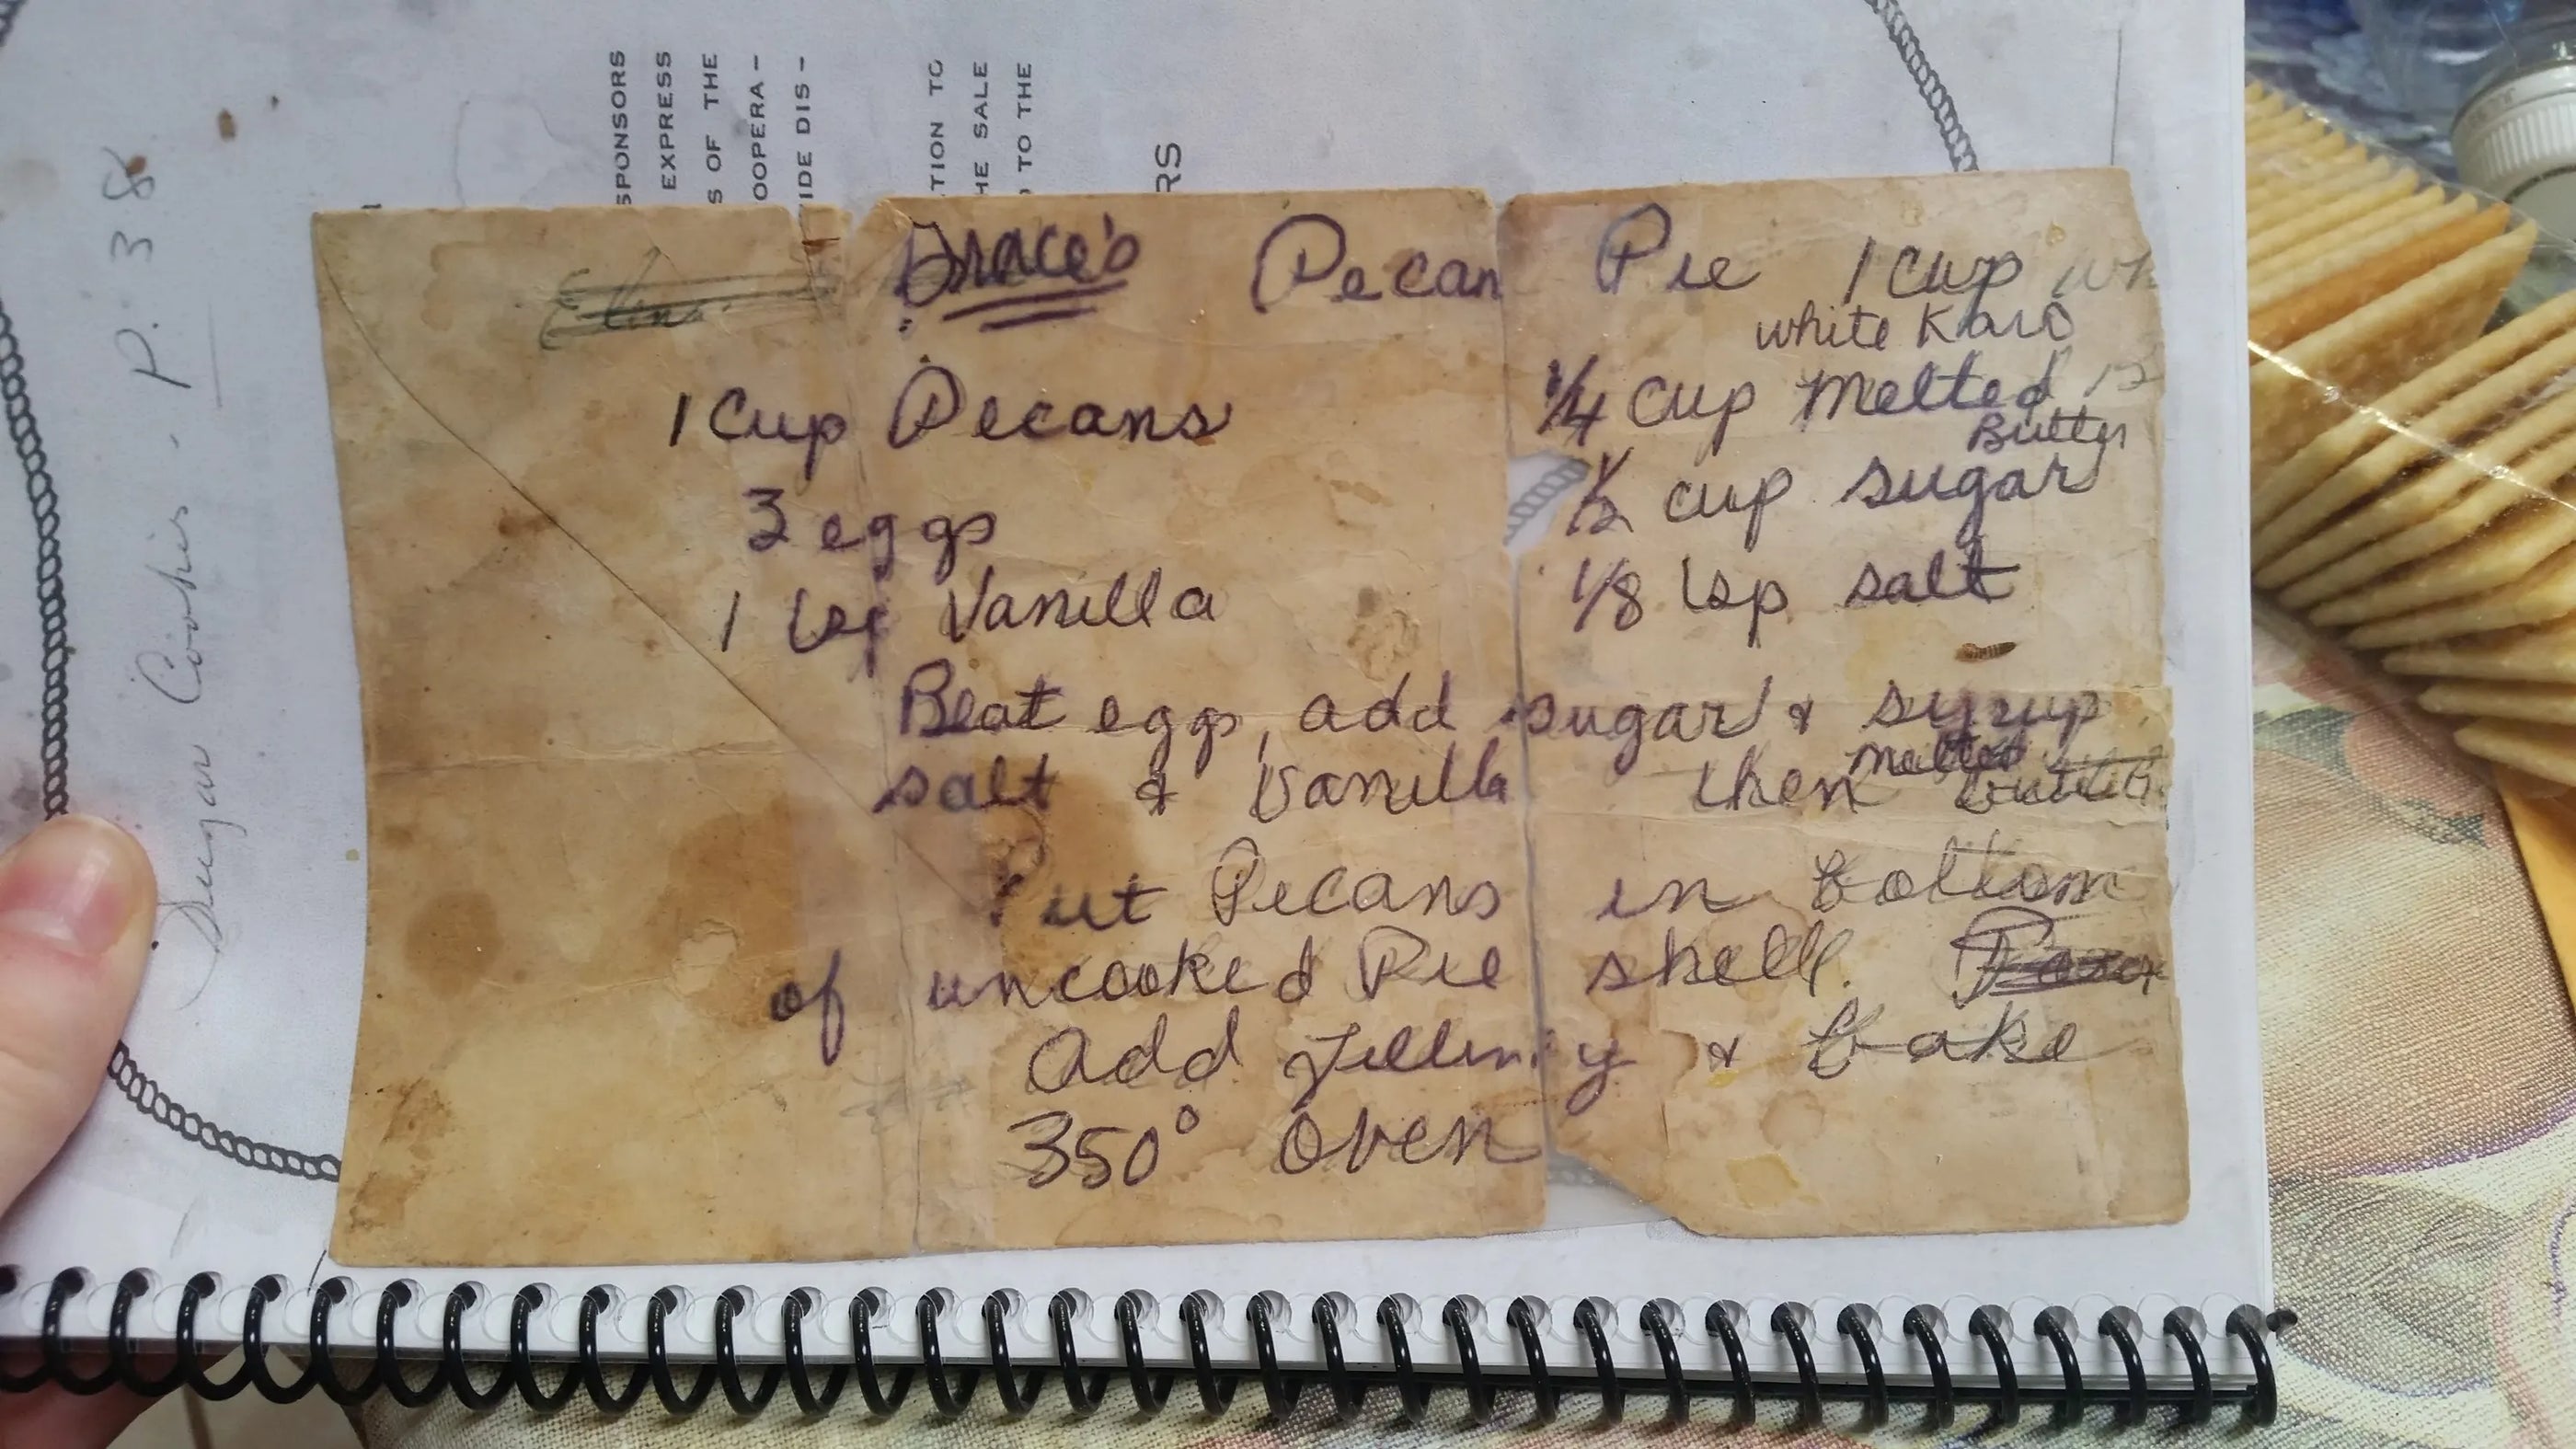 Grace's Pecan Pie 1 cup wh
white Karo
1 Cup Pecans 1/4 cup Melted B
Butter
3 eggs 1/2 cup sugar
1 tsp Vanilla 1/8 tsp salt
Beat eggs, add sugar & syrup
salt & Vanilla then Melted butter
Put Pecans in bottom
of uncooked Pie shell.
Add filling & bake
350° oven
Sugar Cookies - P. 38
SPONSORS
EXPRESS
S OF THE
OOPERA-
IDE DIS-
TION TO
HE SALE
TO THE
RS